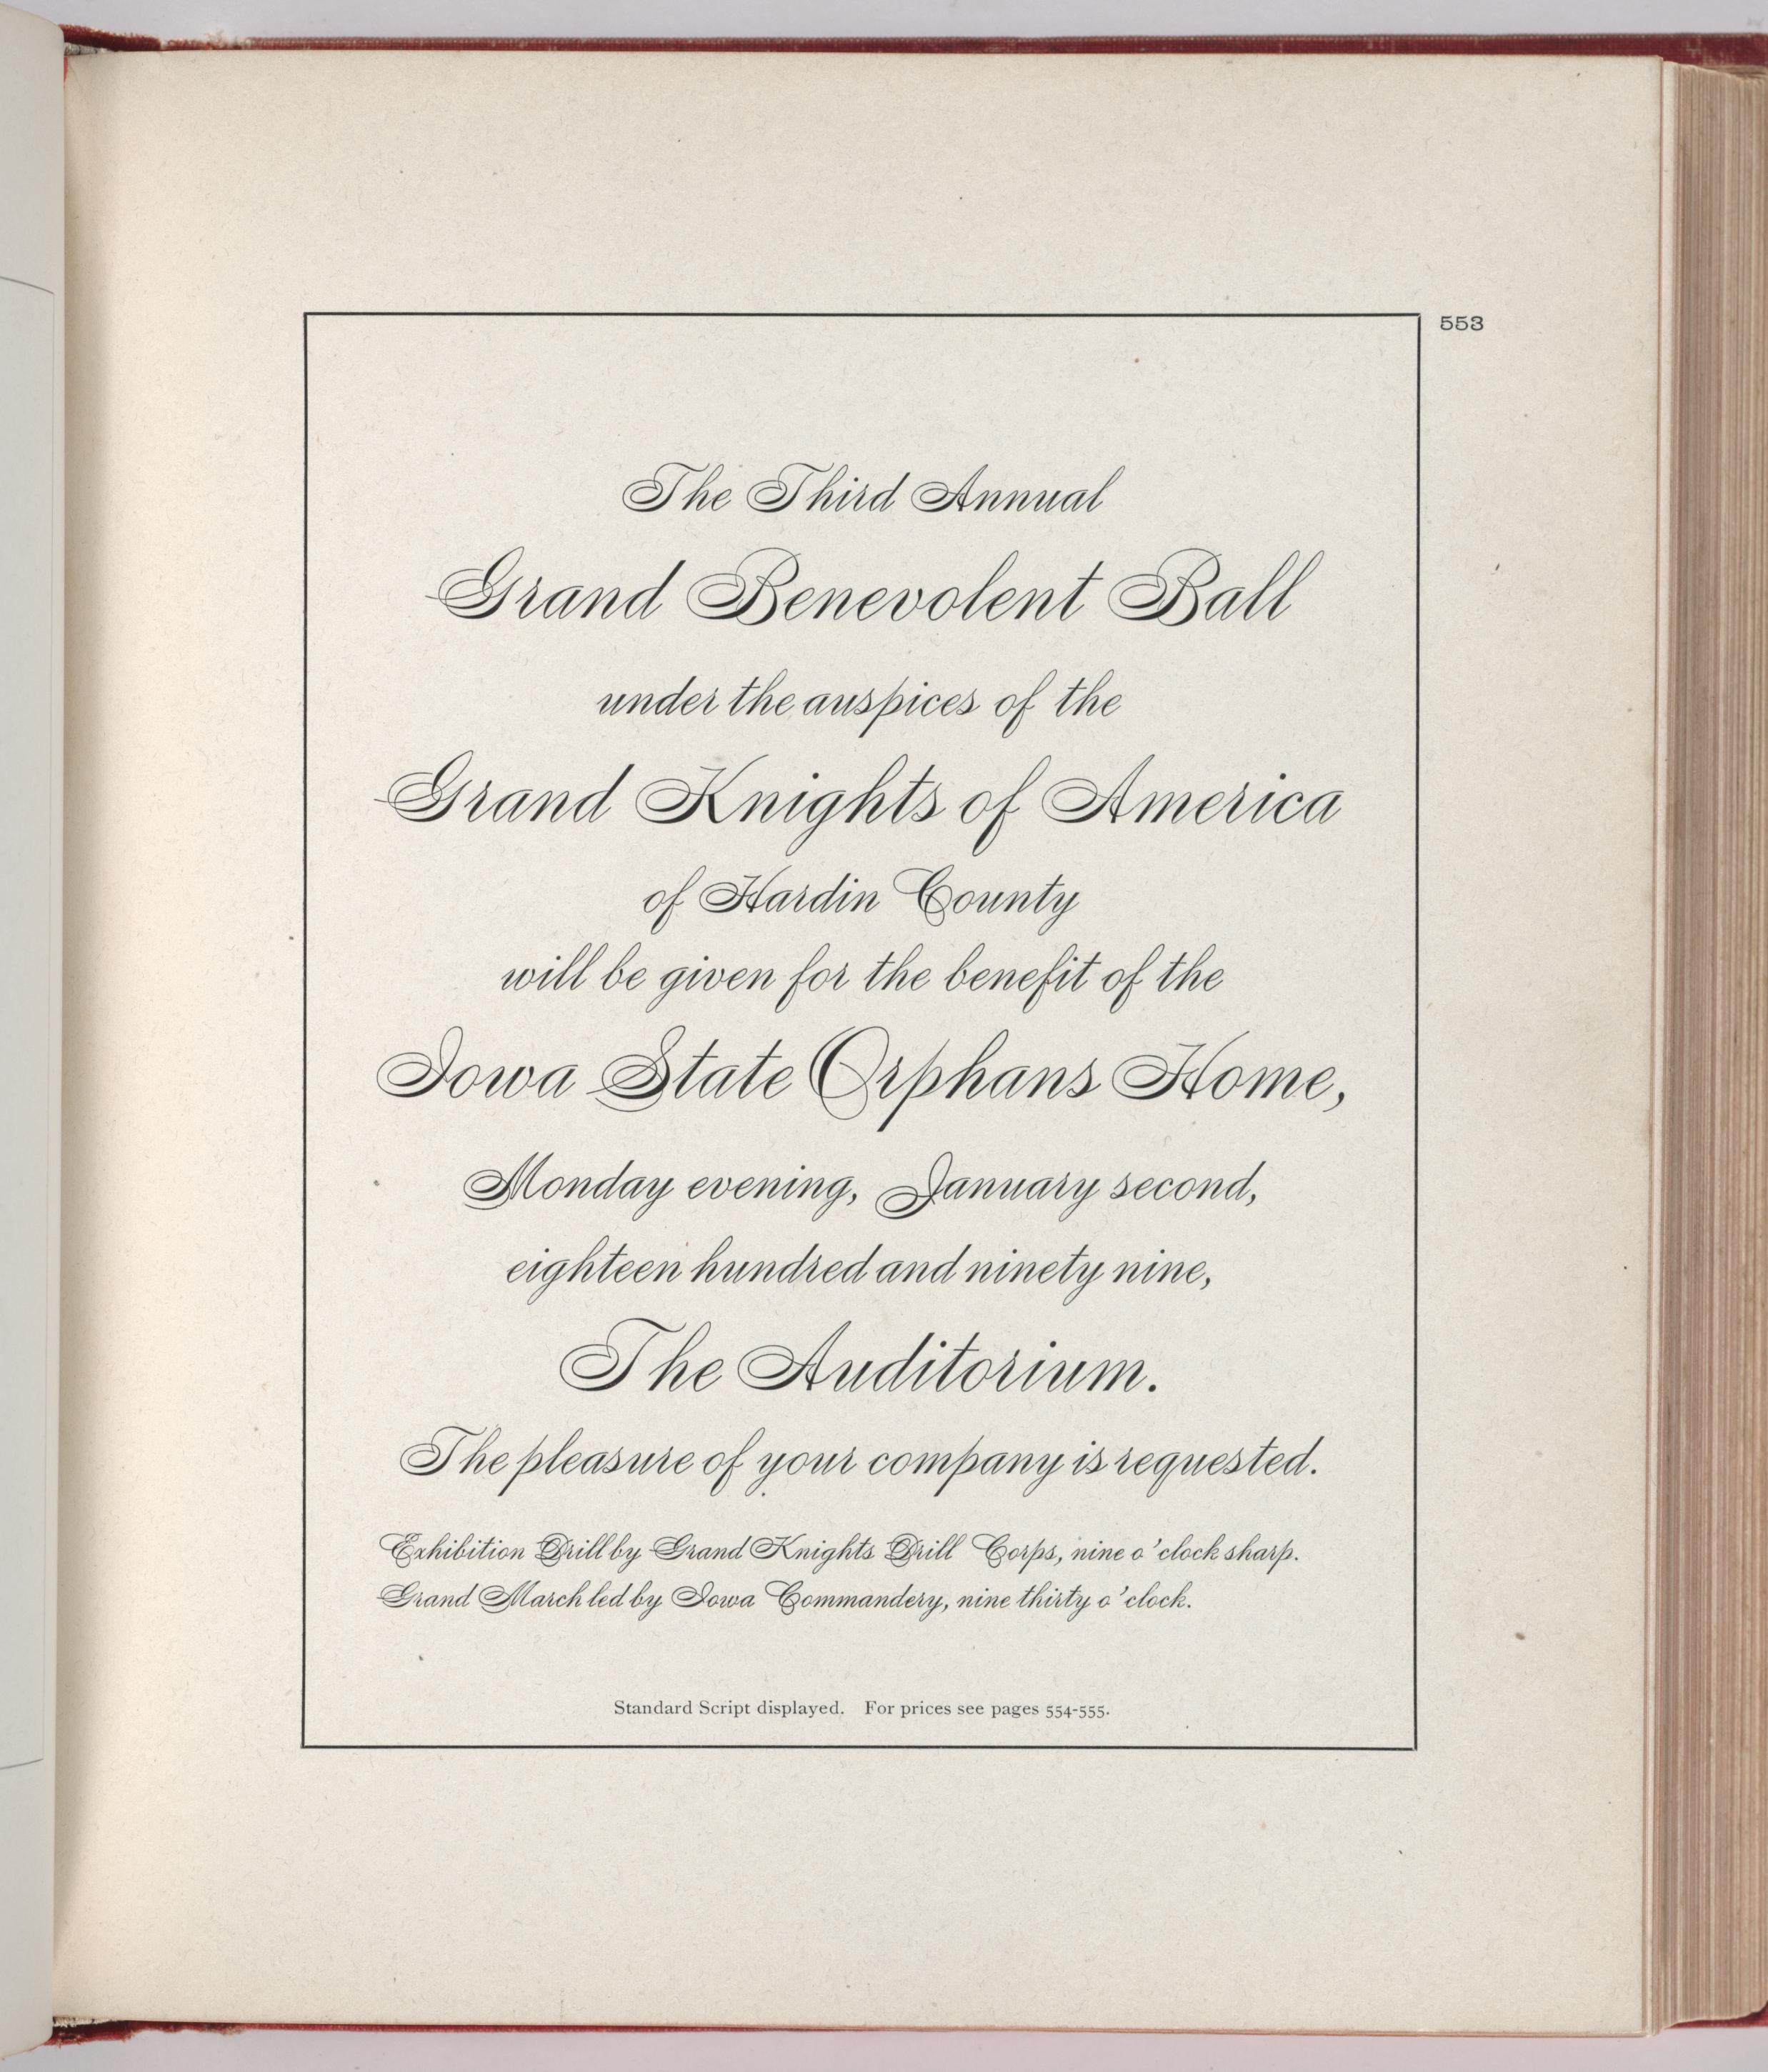 553
The Third Annual
Grand Benevolent Ball
under the auspices of the
Grand Knights of America
of Hardin County
will be given for the benefit of the
Iowa State Orphans Home,
Monday evening, January second,
eighteen hundred and ninety nine,
The Auditorium.
The pleasure of your company is requested.
Exhibition Drill by Grand Knights Drill Corps, nine o'clock sharp.
Grand March led by Iowa Commandery, nine thirty o'clock.
Standard Script displayed. For prices see pages 554-555.